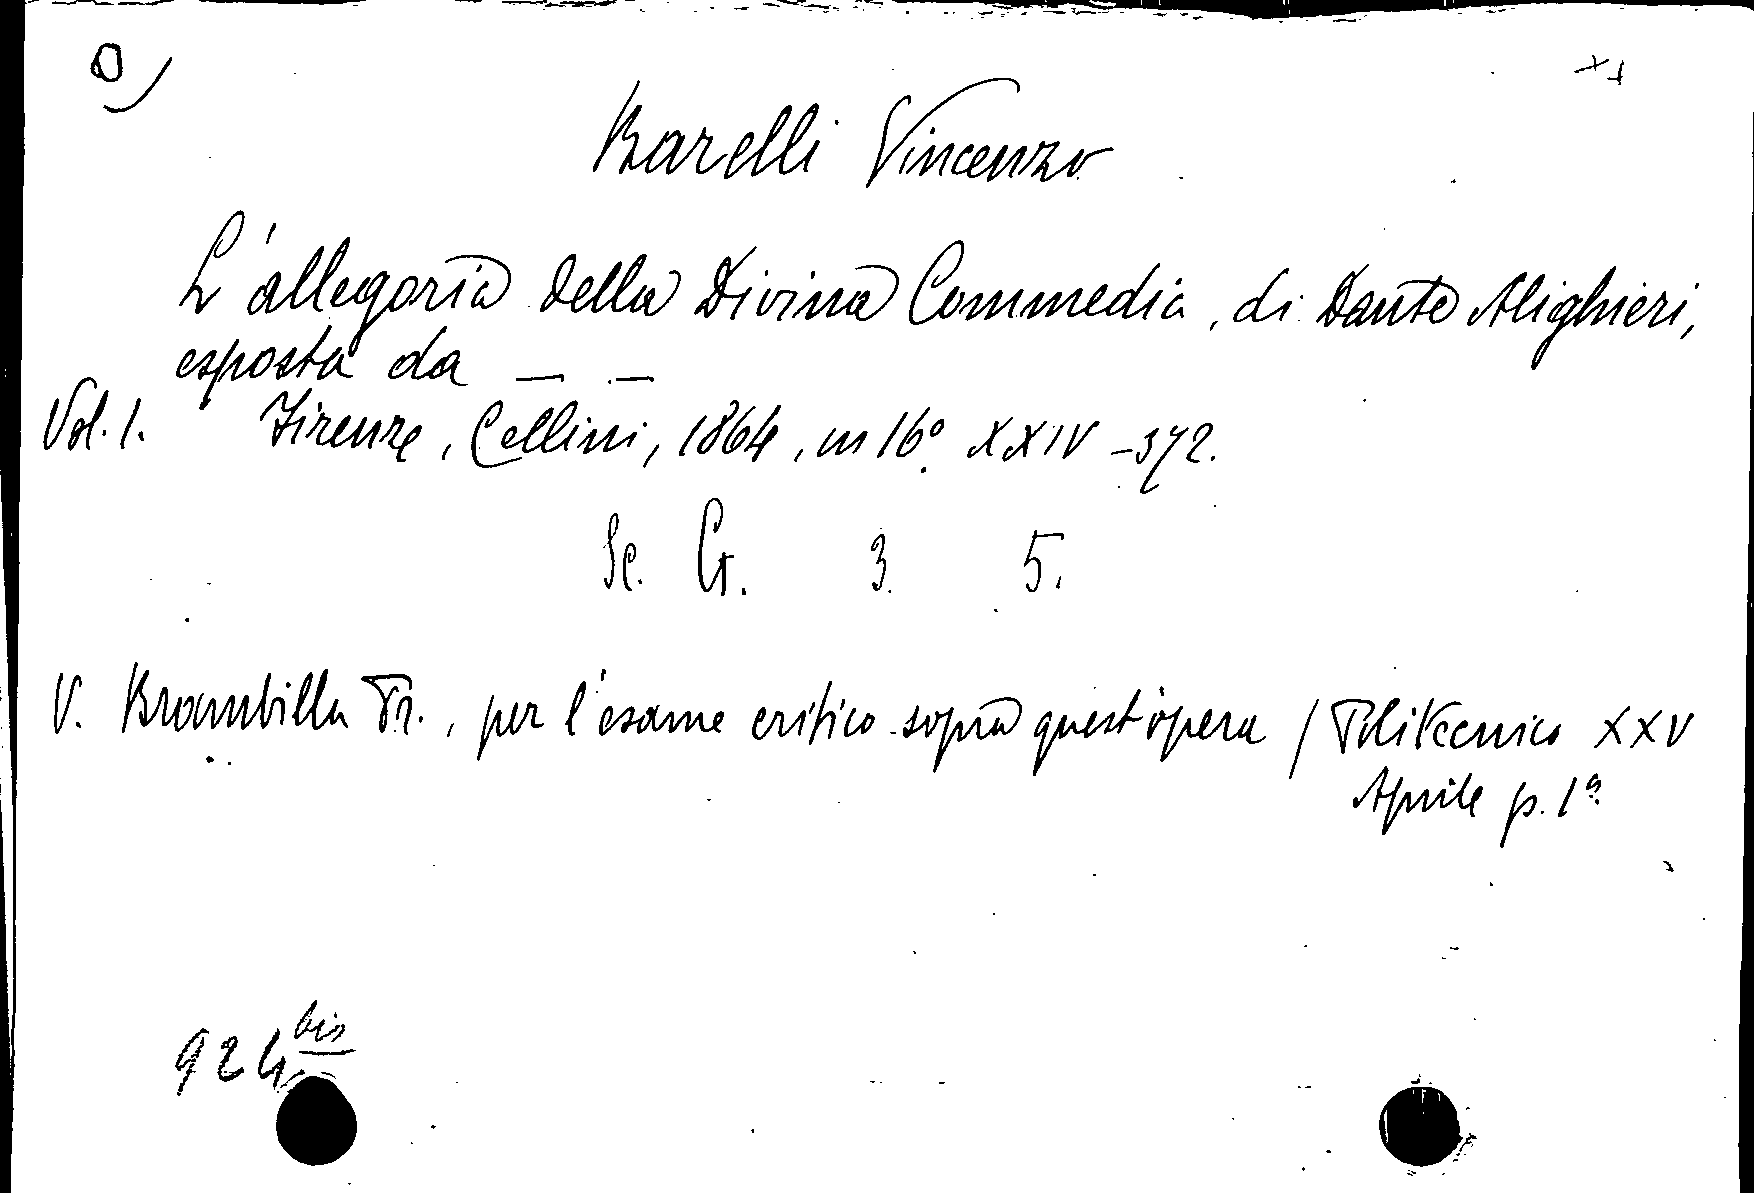 Barelli Vincenzo
L'allegoria della Divina Commedia, di Dante Alighieri,
esposta da — —
Vol. 1. Firenze, Cellini, 1864, in 16° XXIV-372.
Sc. Cr. 3 5.
V. Brambilla Fr., per l'esame critico sopra quest'opera / Politecnico XXV
Aprile p. 1ª
924 bis